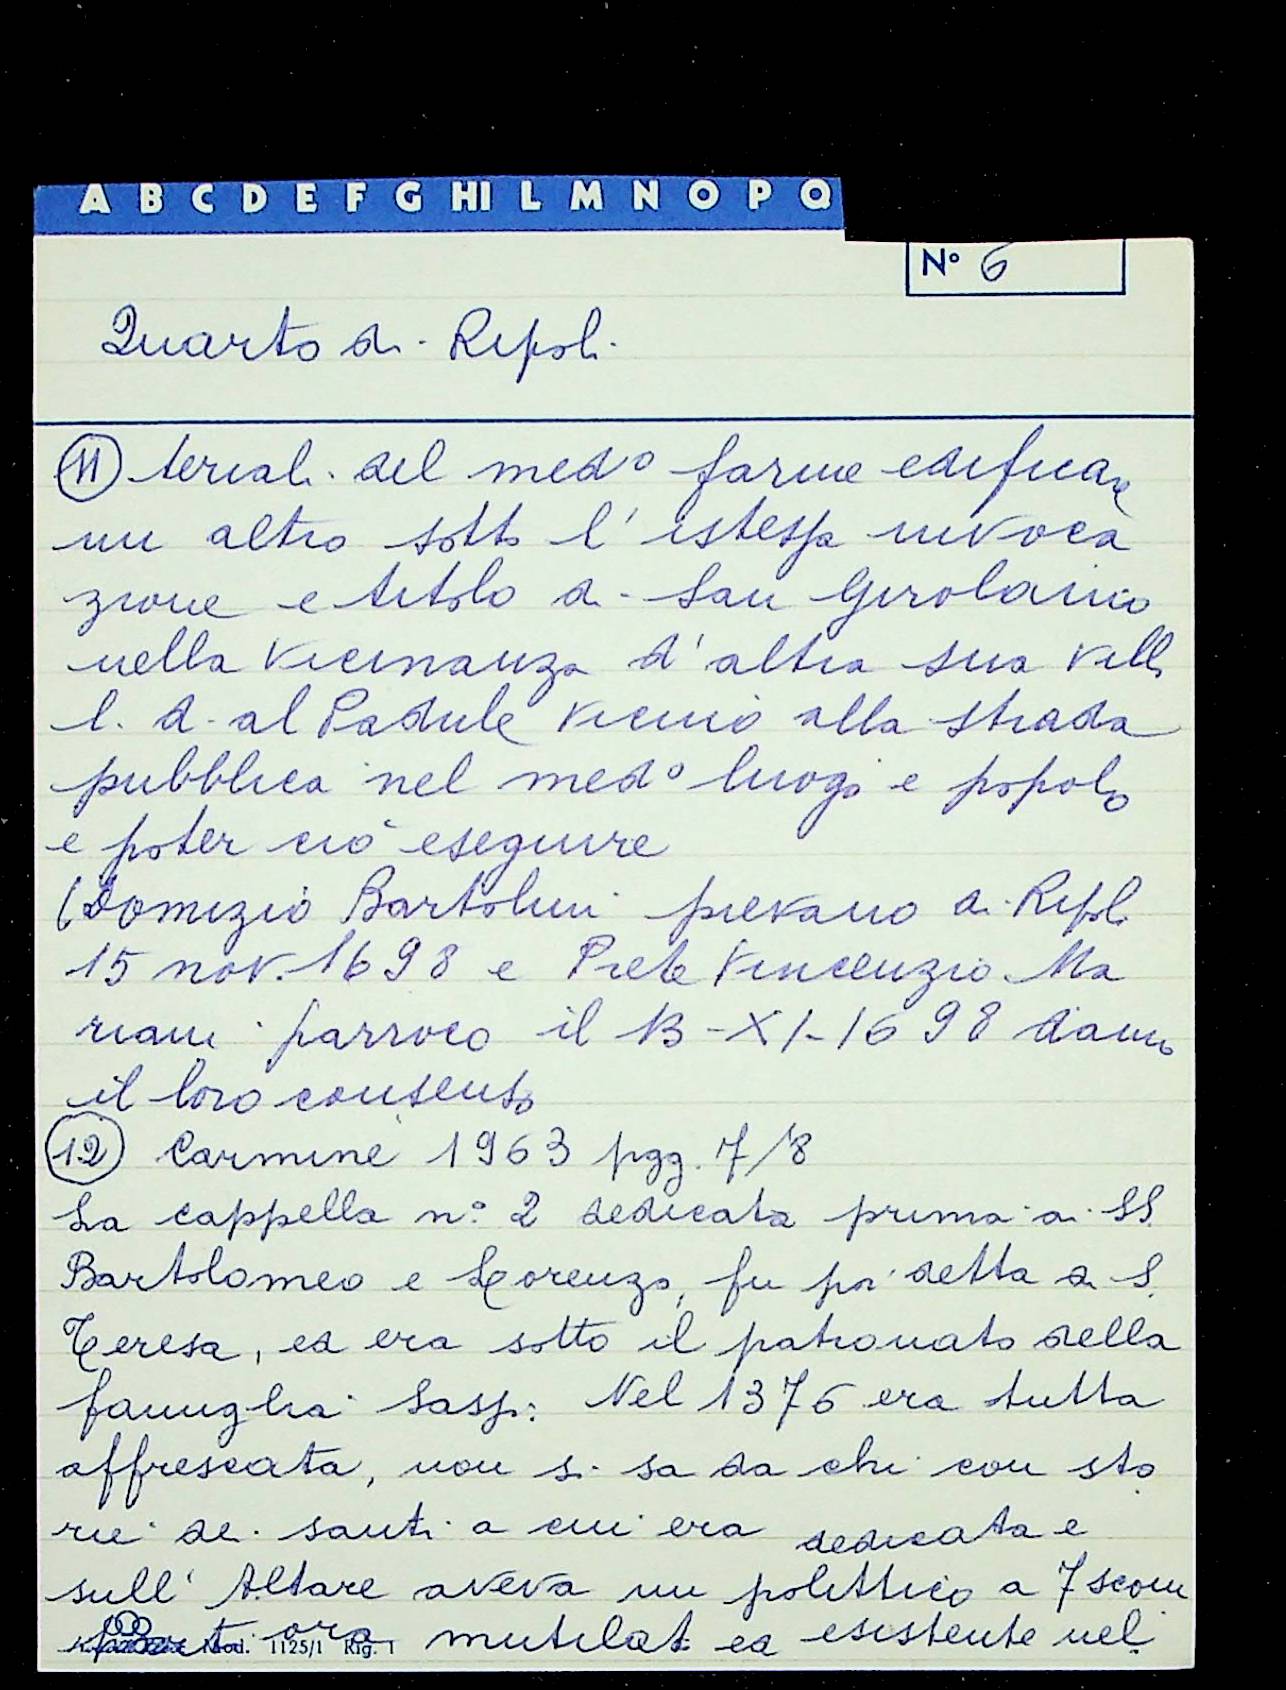 A B C D E F G HI L M N O P Q
N° 6
Quarto di Ripoli
11 teriali del med° farne edificare
un altro sotto l'istessa invoca
zione e titolo di San Girolamo
nella vicinanza d'altra sua villa
l. d. al Padule vicino alla strada
pubblica nel med° luogo e popolo
e poter ciò eseguire
(Domizio Bartolini pievano di Ripoli
15 nov. 1698 e Prete Vincenzio Ma
riani parroco il 13-XI-1698 danno
il loro consenso
12 Carmine 1963 pgg. 7/8
La cappella n° 2 dedicata prima ai SS.
Bartolomeo e Lorenzo, fu poi detta di S.
Teresa, ed era sotto il patronato della
famiglia Sassi. Nel 1376 era tutta
affrescata, non si sa da chi con sto
rie dei santi a cui era dedicata e
sull'Altare aveva un polittico a 7 scom
parti ora mutilati ed esistente nel
Mod. 1125/1 Rig. 1